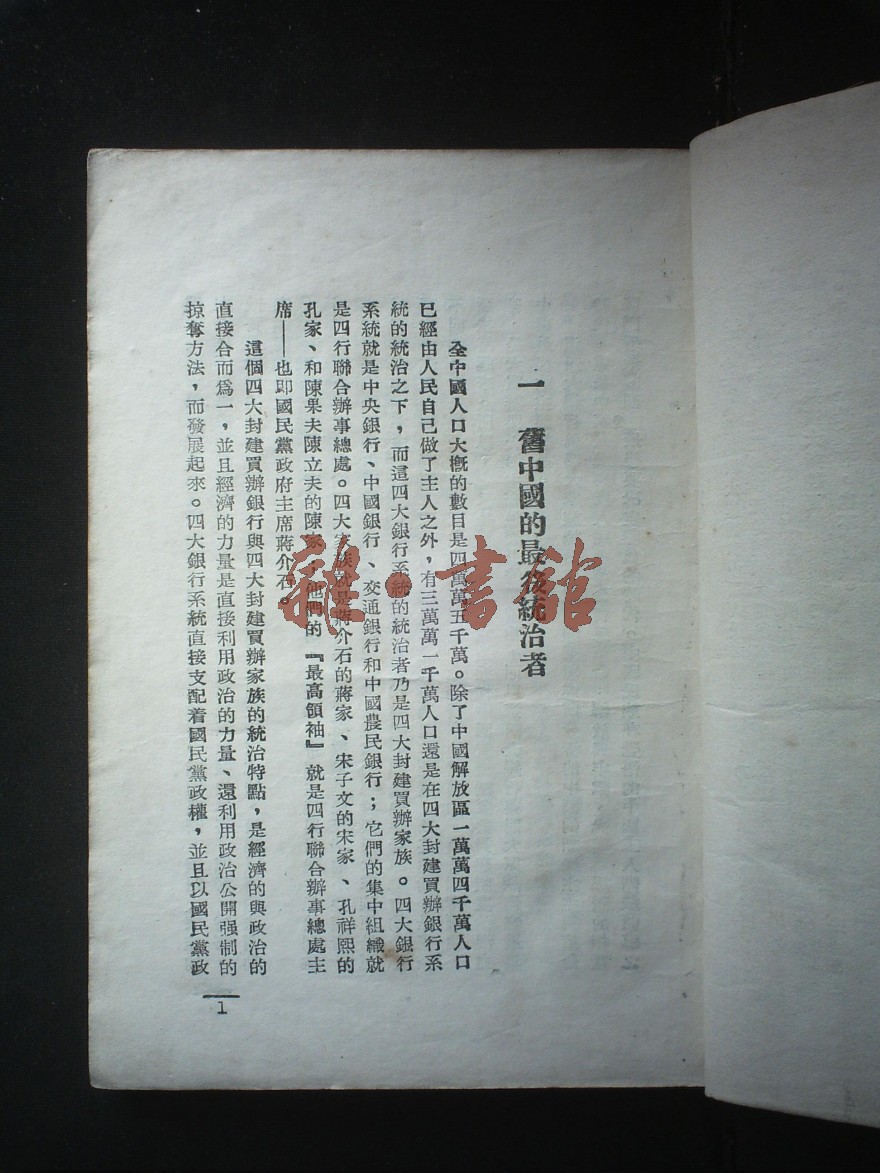 一　舊中國的最後統治者
全中國人口大槪的數目是四萬萬五千萬。除了中國解放區一萬萬四千萬人口
已經由人民自己做了主人之外，有三萬萬一千萬人口還是在四大封建買辦銀行系
統的統治之下，而這四大銀行系統的統治者乃是四大封建買辦家族。四大銀行
系統就是中央銀行、中國銀行、交通銀行和中國農民銀行；它們的集中組織就
是四行聯合辦事總處。四大家族就是蔣介石的蔣家、宋子文的宋家、孔祥熙的
孔家、和陳果夫陳立夫的陳家，他們的『最高領袖』就是四行聯合辦事總處主
席——也卽國民黨政府主席蔣介石。
這個四大封建買辦銀行與四大封建買辦家族的統治特點，是經濟的與政治的
直接合而爲一，並且經濟的力量是直接利用政治的力量、還利用政治公開强制的
掠奪方法，而發展起來。四大銀行系統直接支配着國民黨政權，並且以國民黨政
1
雜·書館